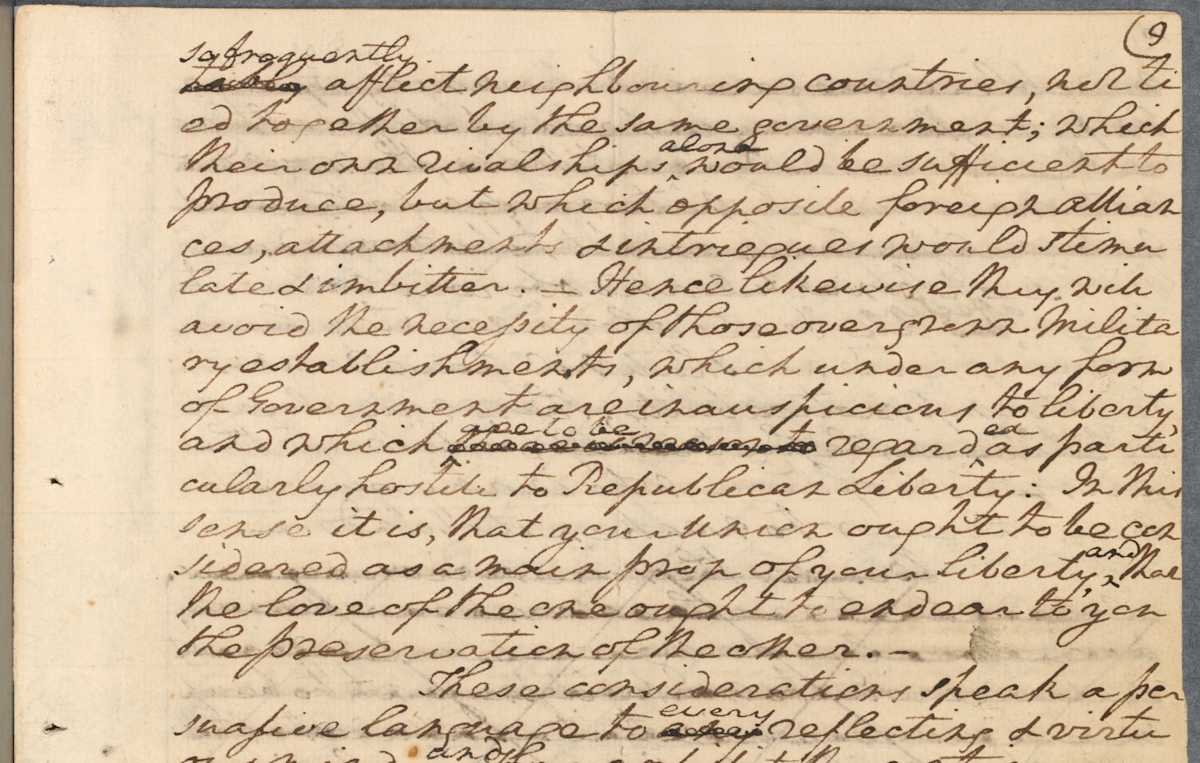 9
so frequently
affect neighbouring countries, not ti
ed together by the same government; which
alone
their own rivalships would be sufficient to
produce, but which opposite foreign allian
ces, attachments & intriegues would stimu
late & imbitter. — Hence likewise they will
avoid the necessity of those overgrown Milita
ry establishments, which under any form
of Government are inauspicious to liberty,
are to be
and which regarded as parti
cularly hostile to Republican Liberty: In this
sense it is, that your Union ought to be con
sidered as a main prop of your liberty, and that
the love of the one ought to endear to you
the preservation of the other. —
These considerations speak a per
suasive language to every reflecting & virtu
and